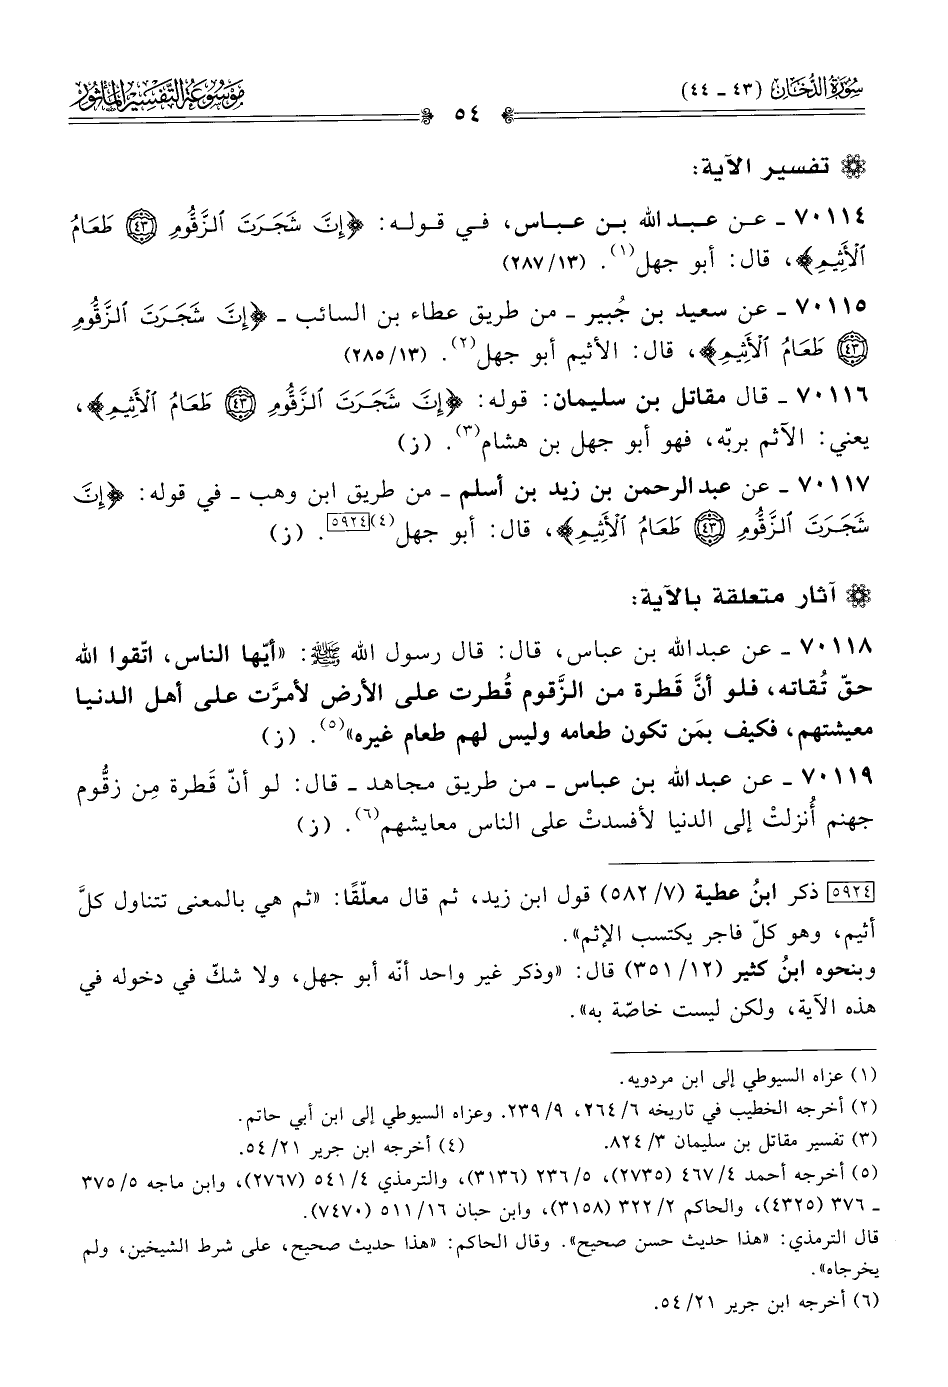 سُورَةُ الدُّخَان (٤٣ - ٤٤)
٥٤
مَوْسُوعَة التَّفْسِيرِ المَأْثُور
تفسير الآية:
٧٠١١٤ - عن عبد الله بن عباس، في قوله: ﴿إِنَّ شَجَرَتَ ٱلزَّقُّومِ ٤٣ طَعَامُ
ٱلْأَثِيمِ﴾، قال: أبو جهل(١). (١٣/ ٢٨٧)
٧٠١١٥ - عن سعيد بن جُبير - من طريق عطاء بن السائب - ﴿إِنَّ شَجَرَتَ ٱلزَّقُّومِ
٤٣ طَعَامُ ٱلْأَثِيمِ﴾، قال: الأثيم أبو جهل(٢). (١٣/ ٢٨٥)
٧٠١١٦ - قال مقاتل بن سليمان: قوله: ﴿إِنَّ شَجَرَتَ ٱلزَّقُّومِ ٤٣ طَعَامُ ٱلْأَثِيمِ﴾،
يعني: الآثم بربّه، فهو أبو جهل بن هشام(٣). (ز)
٧٠١١٧ - عن عبد الرحمن بن زيد بن أسلم - من طريق ابن وهب - في قوله: ﴿إِنَّ
شَجَرَتَ ٱلزَّقُّومِ ٤٣ طَعَامُ ٱلْأَثِيمِ﴾، قال: أبو جهل(٤)[٥٩٢٤]. (ز)
آثار متعلقة بالآية:
٧٠١١٨ - عن عبد الله بن عباس، قال: قال رسول الله ﷺ: «أيّها الناس، اتّقوا الله
حقّ تُقاته، فلو أنَّ قَطرة من الزَّقوم قُطرت على الأرض لأمرَّت على أهل الدنيا
معيشتهم، فكيف بمَن تكون طعامه وليس لهم طعام غيره»(٥). (ز)
٧٠١١٩ - عن عبد الله بن عباس - من طريق مجاهد - قال: لو أنّ قَطرة مِن زقُّوم
جهنم أُنزلتْ إلى الدنيا لأفسدتْ على الناس معايشهم(٦). (ز)
[٥٩٢٤] ذكر ابنُ عطية (٧/ ٥٨٢) قول ابن زيد، ثم قال معلّقًا: «ثم هي بالمعنى تتناول كلَّ
أثيم، وهو كلّ فاجر يكتسب الإثم».
وبنحوه ابنُ كثير (١٢/ ٣٥١) قال: «وذكر غير واحد أنّه أبو جهل، ولا شكّ في دخوله في
هذه الآية، ولكن ليست خاصّة به».
(١) عزاه السيوطي إلى ابن مردويه.
(٢) أخرجه الخطيب في تاريخه ٦/ ٢٦٤، ٩/ ٢٣٩. وعزاه السيوطي إلى ابن أبي حاتم.
(٣) تفسير مقاتل بن سليمان ٣/ ٨٢٤. (٤) أخرجه ابن جرير ٢١/ ٥٤.
(٥) أخرجه أحمد ٤/ ٤٦٧ (٢٧٣٥)، ٥/ ٢٣٦ (٣١٣٦)، والترمذي ٤/ ٥٤١ (٢٧٦٧)، وابن ماجه ٥/ ٣٧٥
- ٣٧٦ (٤٣٢٥)، والحاكم ٢/ ٣٢٢ (٣١٥٨)، وابن حبان ١٦/ ٥١١ (٧٤٧٠).
قال الترمذي: «هذا حديث حسن صحيح». وقال الحاكم: «هذا حديث صحيح، على شرط الشيخين، ولم
يخرجاه».
(٦) أخرجه ابن جرير ٢١/ ٥٤.